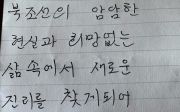 북조선의 암담한
현실과 리망없는
삶 속에서 새로운
진리를 찾게되어